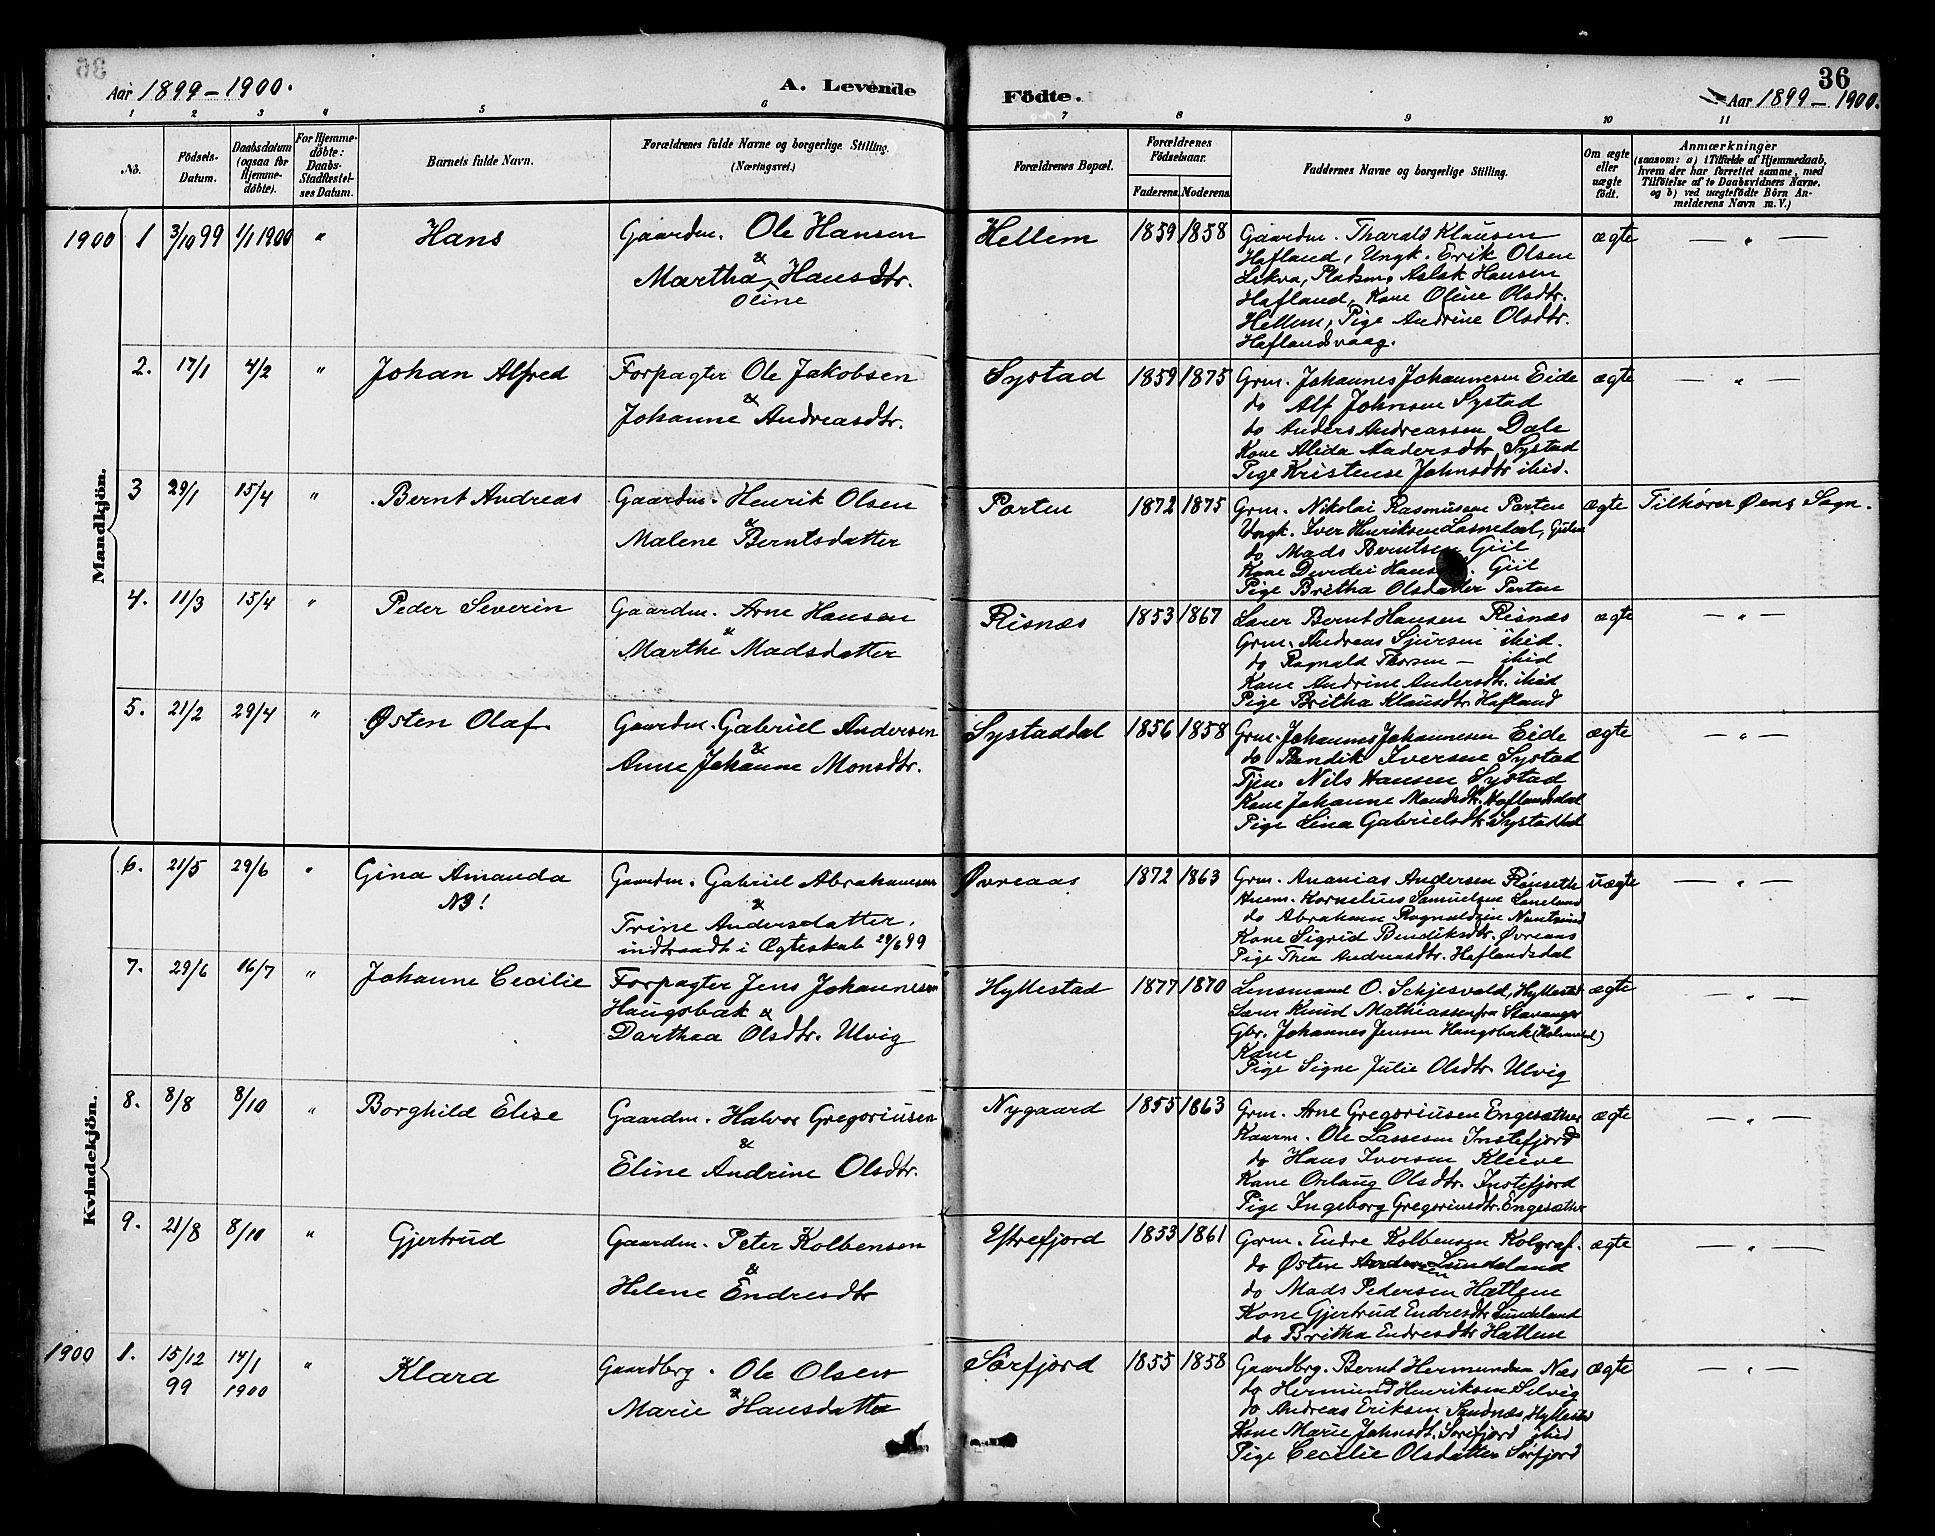 36
Aar 1899 - 1900. A. Levende Födte. Aar 1899 - 1900.
1 2 3 4 5 6 7 8 9 10 11
No. Födsels-Datum. Daabsdatum (ogsaa for Hjemme-döbte). For Hjemme-döbte: Daabs-Stadfæstel-ses Datum. Barnets fulde Navn. Forældrenes fulde Navne og borgerlige Stilling. (Næringsvei.) Forældrenes Bopæl. Forældrenes Födselsaar. Faderens. Moderens. Faddernes Navne og borgerlige Stilling. Om ægte eller uægte födt. Anmærkninger (saasom: a) i Tilfælde af Hjemmedaab, hvem der har forrettet samme, med Tilföielse af to Daabsvidners Navne, og b) ved uægtefödte Börn An-melderens Navn m. V.)
Mandkjön.
1900 1 3/10 99 1/1 1900 " Hans
Gaardm. Ole Hansen
&
Martha Hansdtr.
Oline
Hellem 1859 1858
Gaardm. Tharald Klausen
Hafland, Ungk. Erik Olsen
Lekva, Pladsm. Aslak Hansen
Hafland, Kone Oline Olsdtr.
Hellem, Pige Andrine Olsdtr.
Haflandsvaag.
ægte — " —
2. 17/1 4/2 " Johan Alfred
Forpagter Ole Jakobsen
&
Johanne Andreasdtr.
Systad 1859 1875
Grm. Johannes Johannesen Eide
do Alf Johnsen Systad
do Anders Andreassen Dale
Kone Alida Andersdtr. Systad
Pige Kristense Johnsdtr ibid.
ægte — " —
3 29/1 15/4 " Bernt Andreas
Gaardm. Henrik Olsen
&
Malene Berntsdatter
Porten 1872 1875
Grm. Nikolai Rasmussen Porten
Ungk. Iver Henriksen Gulen
do Mads Berntsen Giil
Kone Giil
Pige Britha Olsdatter Porten
ægte Tilhører Øens Sogn.
4. 11/3 15/4 " Peder Severin
Gaardm. Arne Hansen
&
Marthe Madsdatter
Risnæs 1853 1867
Lærer Bernt Hansen Risnæs
Grm. Andreas Sjursen ibid.
do Ragnald Thorsen — ibid
Kone Andrine Andersdtr. ibid
Pige Britha Klausdtr. Hafland
ægte — " —
5. 21/2 29/4 " Østen Olaf
Gaardm. Gabriel Andersen
&
Anne Johanne Monsdtr.
Systaddal 1856 1858
Grm. Johannes Johannesen Eide
do Bendik Iversen Systad
Tjen. Nils Hansen Systad
Kone Johanne Monsdtr. Haflandsdal
Pige Lina Gabrielsdtr. Systaddal
ægte — " —
Kvindekjön.
6. 21/5 29/6 " Gina Amanda
NB!
Gaardm. Gabriel Abrahamsen
&
Trine Andersdatter,
indtraadt i Ægteskab 29/6 99
Øvreaas 1872 1863
Grm. Ananias Andersen
Kornelius Samuelsen
do Abraham Ragnaldsen
Kone Sigrid Bendiksdtr. Øvreaas
Pige Thea Andreasdtr. Haflandsdal
uægte — " —
7. 29/6 16/7 " Johanne Cecilie
Forpagter Jens Johannesen
Haugsbak &
Darthea Olsdtr. Ulvig
Hyllestad 1877 1870
Lensmand O. Schjesvold, Hyllestad
Knud Mathiassen fra Stavanger
Gbr. Johannes Jensen Haugsbak
Kone
Pige Signe Julie Olsdtr. Ulvig
ægte — " —
8. 8/8 8/10 " Borghild Elise
Gaardm. Halvor Gregoriusen
&
Eline Andrine Olsdtr.
Nygaard 1855 1863
Grm. Arne Gregoriusen Engesæther
Kaarm. Ole Lassesen Instefjord
do Hans Iversen Kleive
Kone Orlaug Olsdtr. Instefjord
Pige Ingeborg Gregoriusdtr. Engesæther
ægte — " —
9. 21/8 8/10 " Gjertrud
Gaardm. Peter Kolbensen
&
Helene Endresdtr
Ytrefjord 1853 1861
Grm. Endre Kolbensen Kolgraf.
do Østen Andersen Sundeland
do Mads Pedersen Hatlem
Kone Gjertrud Endresdtr Sundeland
do Britha Endresdtr Hatlem
ægte — " —
1900 1. 15/12 99 14/1 1900 " Klara
Gaardbrg. Ole Olsen
&
Marie Hansdatter
Sørfjord 1855 1858
Gaardbrg. Bernt Hermundsen Næs
do Hermund Henriksen Selvig
do Andreas Eriksen Sandnæs, Hyllestad
Kone Marie Johnsdtr. Sørefjord ibid
Pige Cecilie Olsdatter Sørfjord
ægte — " —